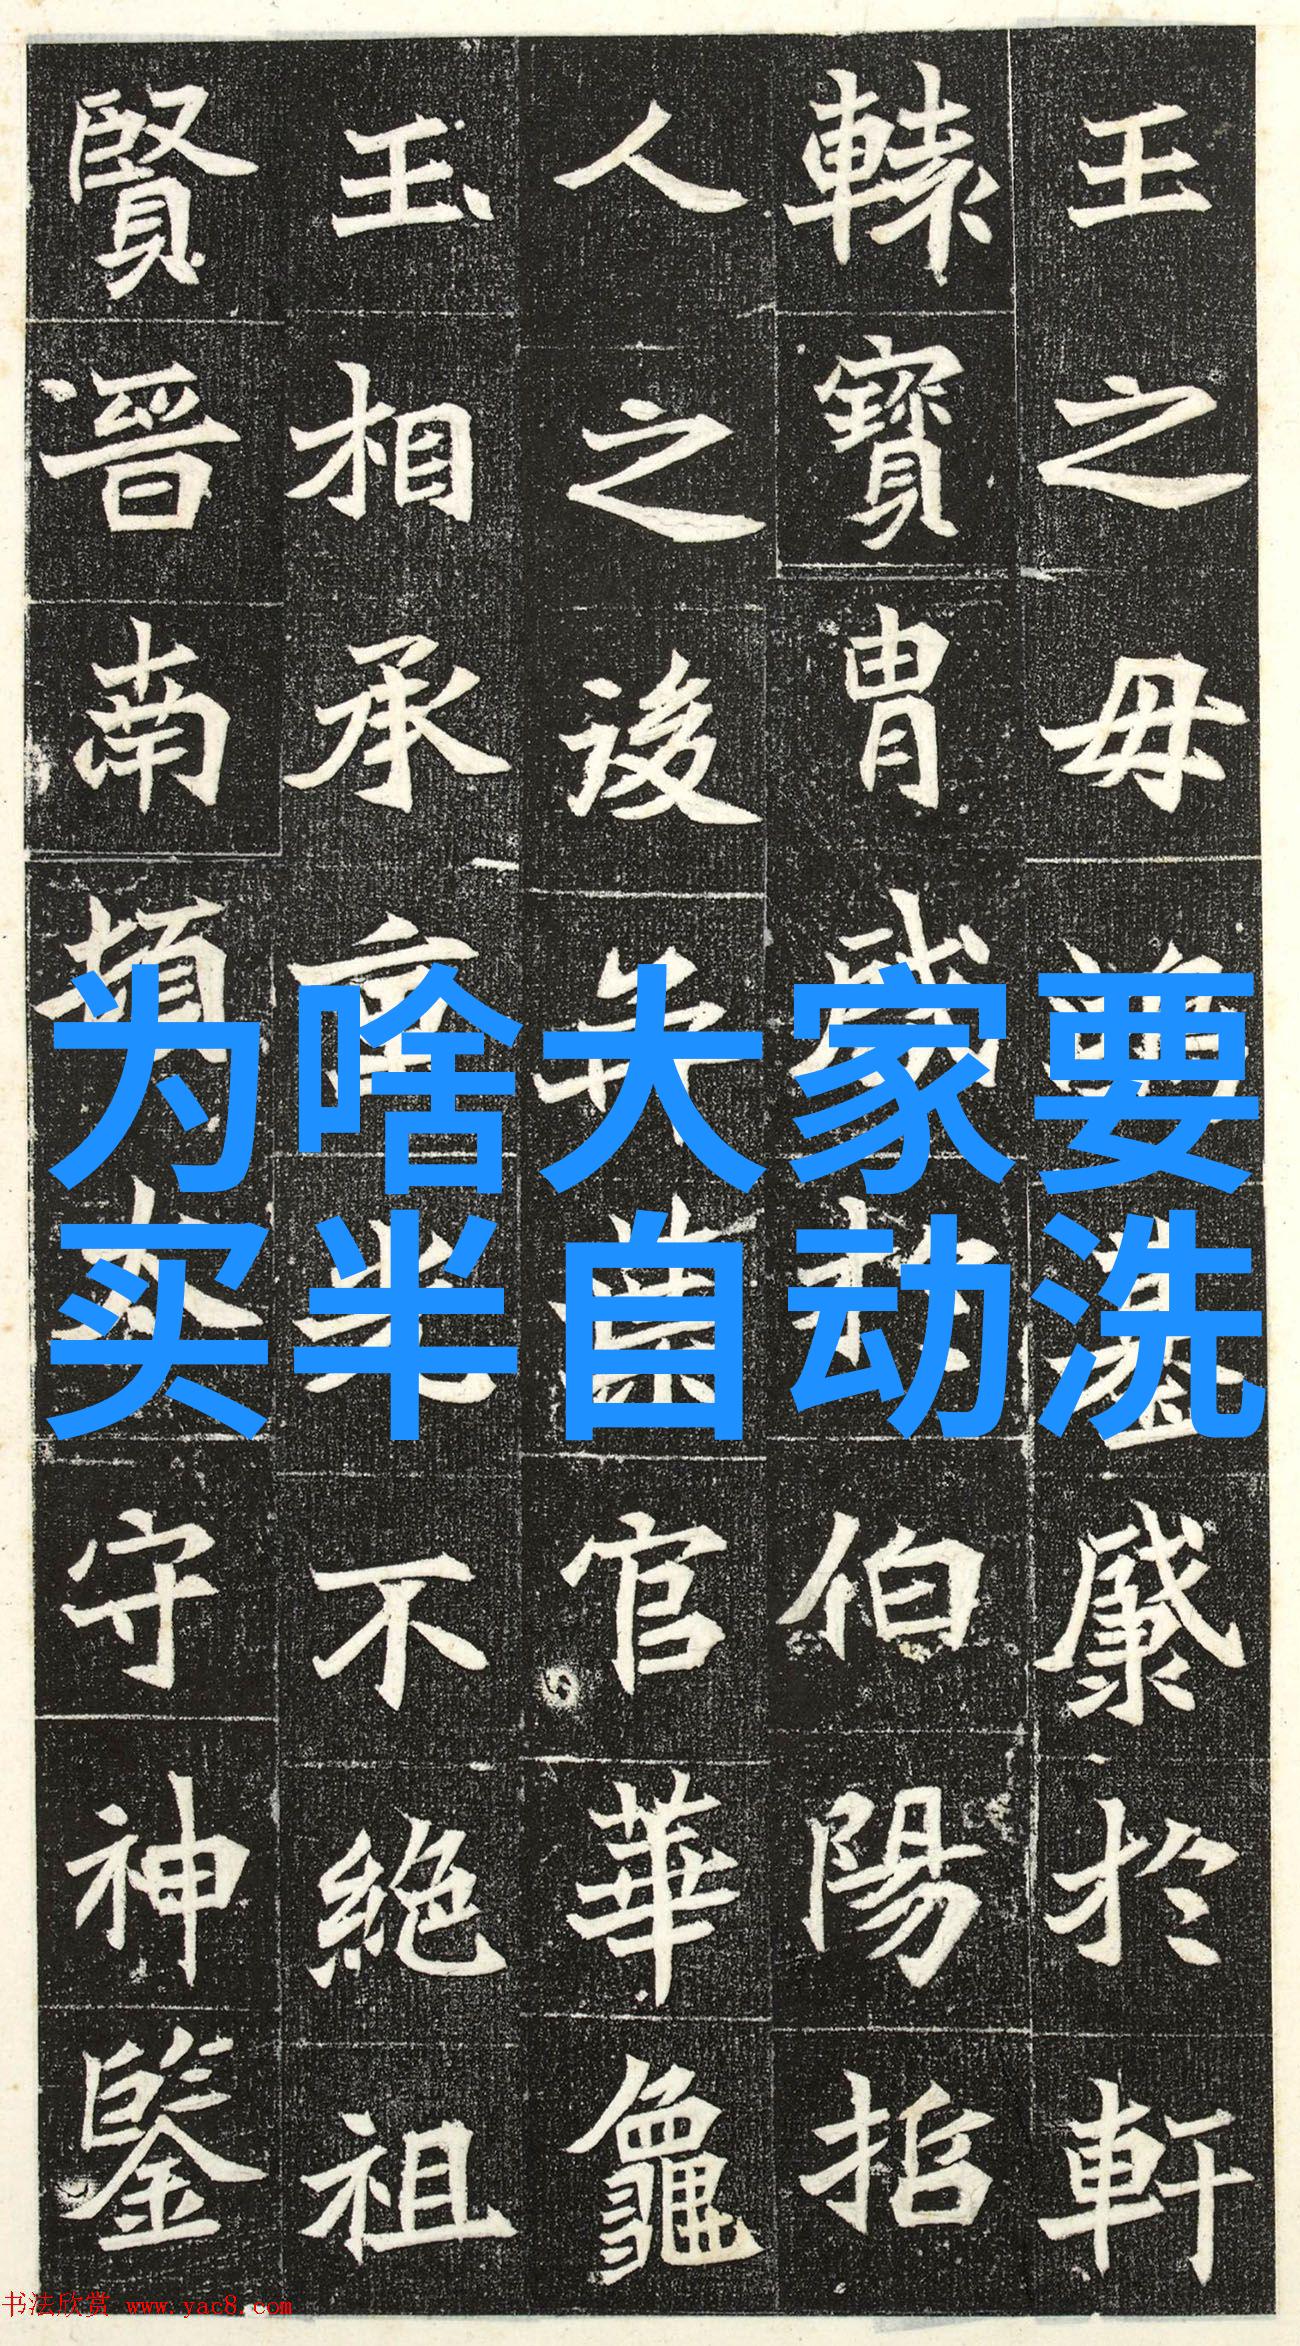 为啥大家要
买半自动洗
王之毋於軒
轅寶胄於伯陽
人之後官華龜
玉相承重光不絕祖
賢晉南頓太守神鑒
书法欣赏 www.yac8.com